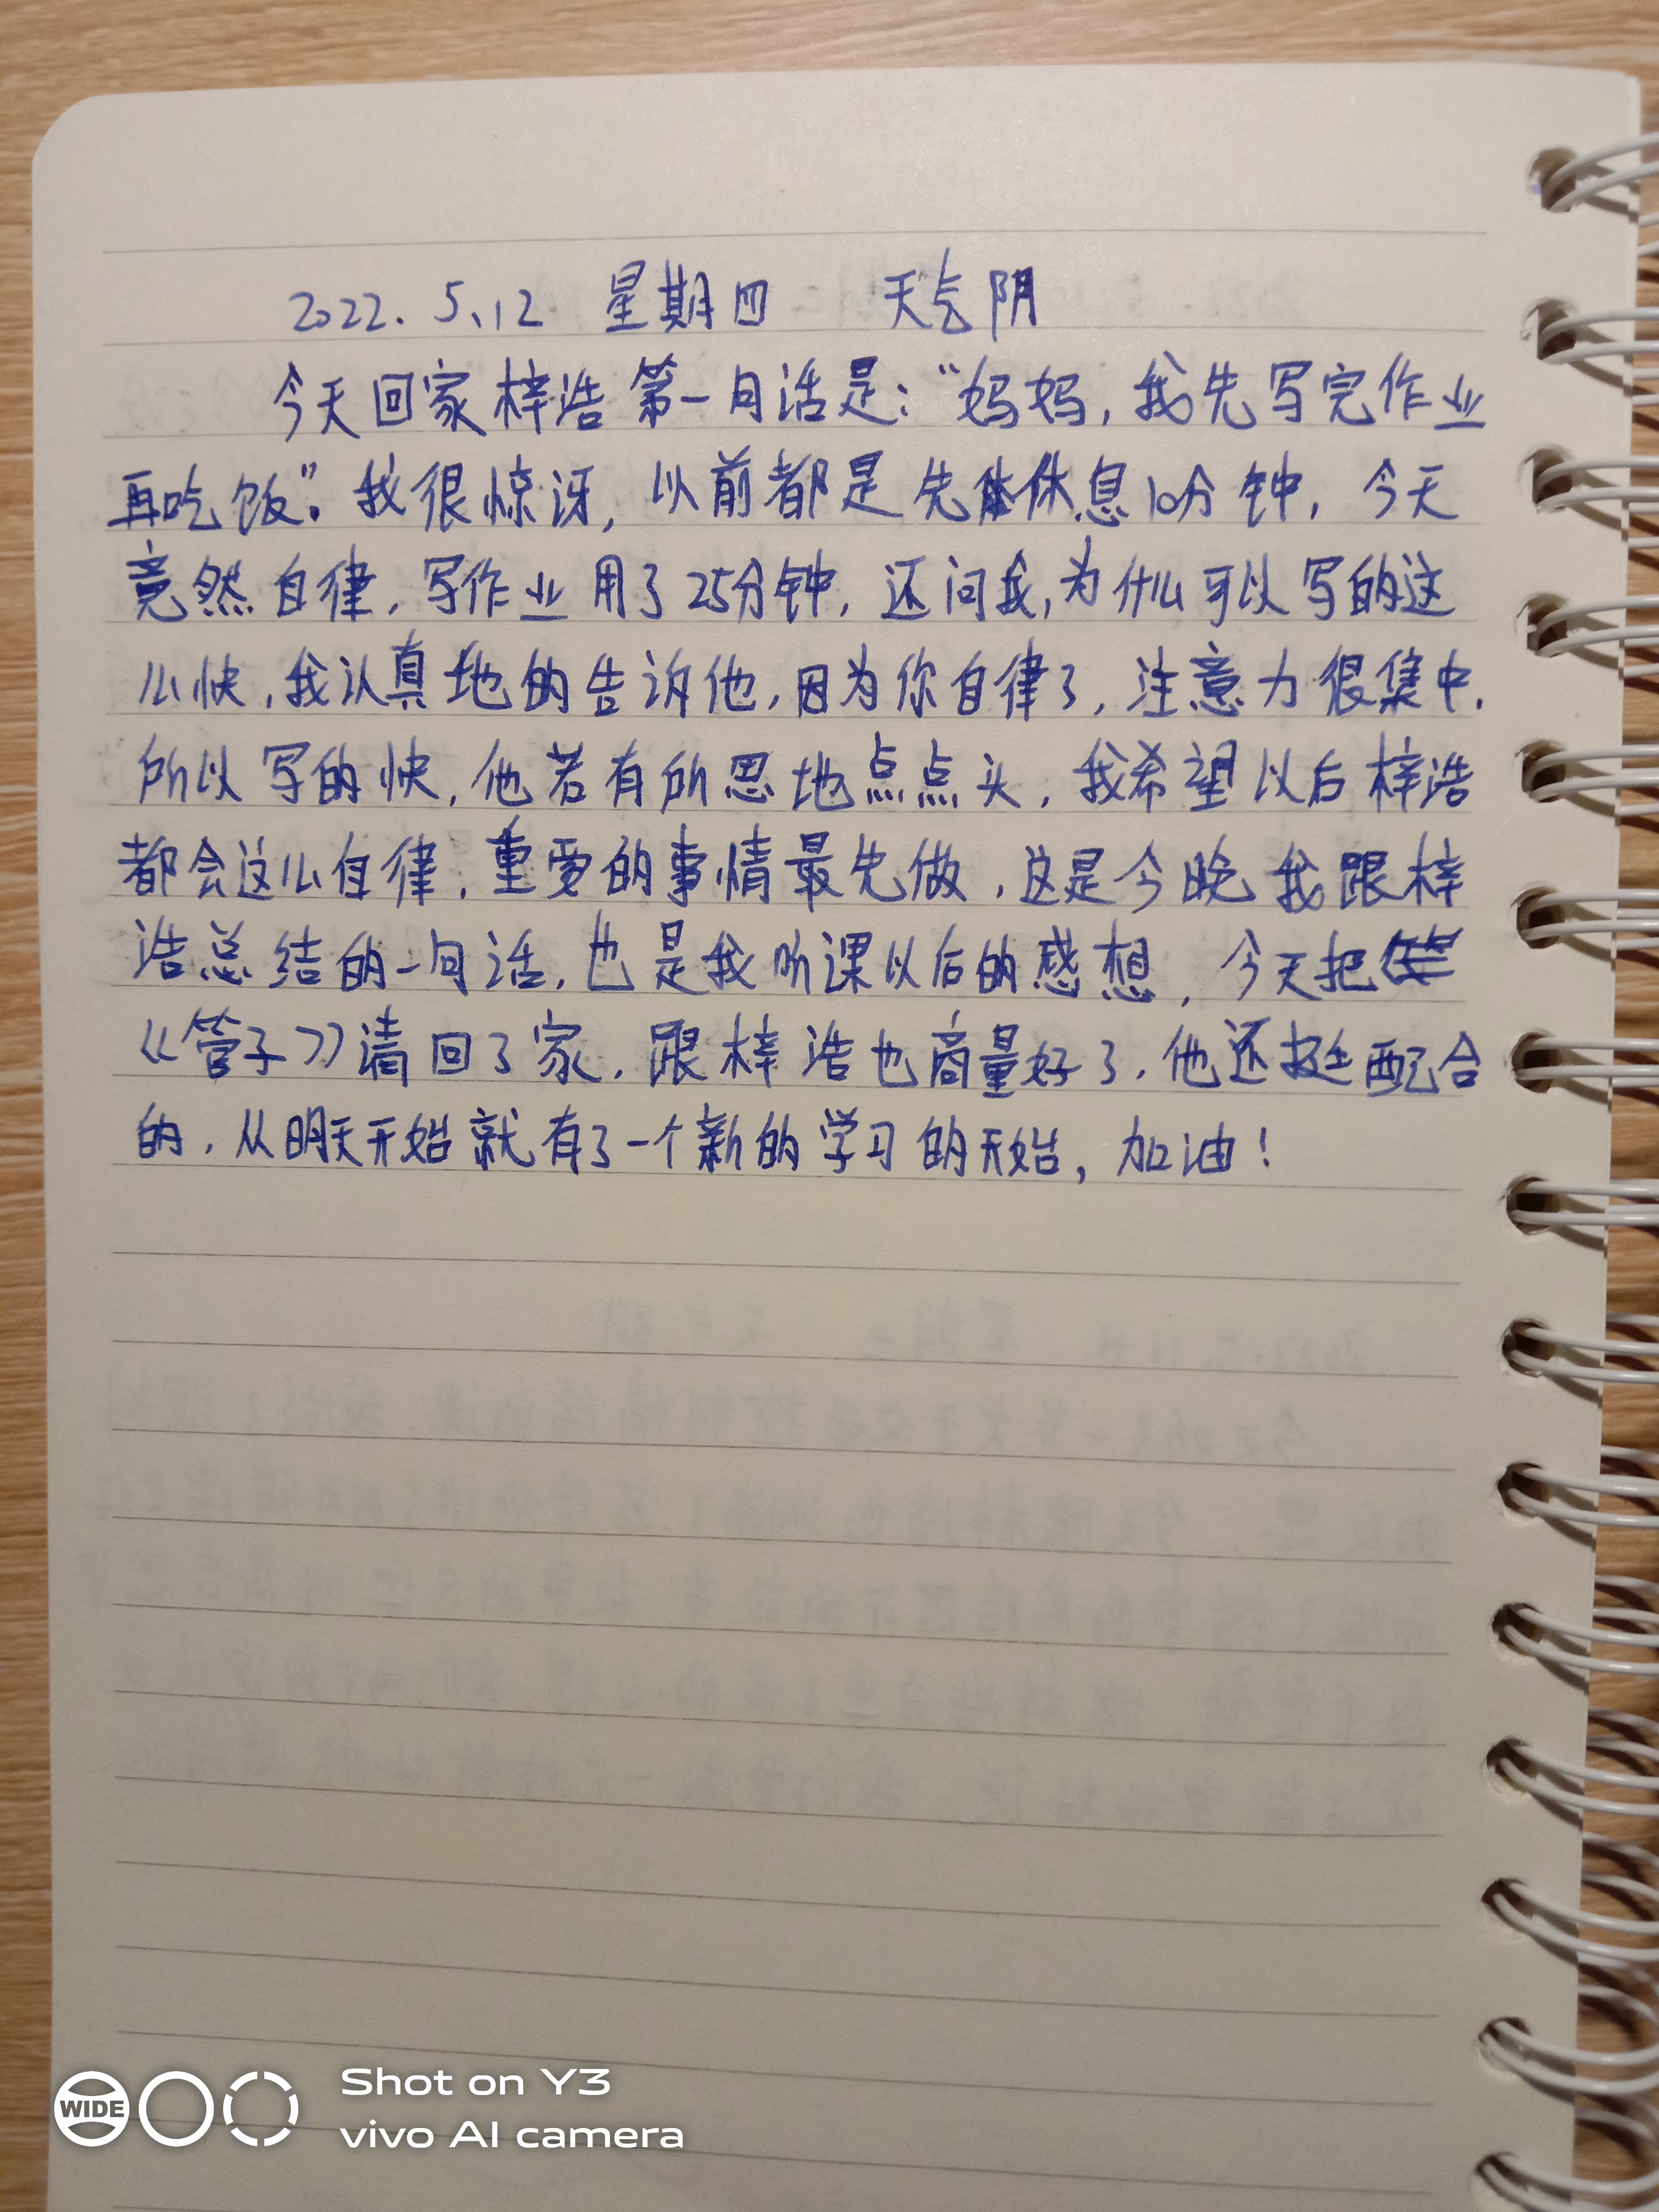 2022. 5.12 星期四 天气阴
今天回家梓浩第一句话是：“妈妈，我先写完作业
再吃饭”。我很惊讶，以前都是先休息10分钟，今天
竟然自律，写作业用了25分钟，还问我，为什么可以写的这
么快，我认真地的告诉他，因为你自律了，注意力很集中.
所以写的快，他若有所思地点点头，我希望以后梓浩
都会这么自律，重要的事情最先做，这是今晚我跟梓
浩总结的一句话，也是我听课以后的感想，今天把
《管子》请回了家，跟梓浩也商量好了，他还挺配合
的，从明天开始就有了一个新的学习的开始，加油！
WIDE
Shot on Y3
vivo AI camera